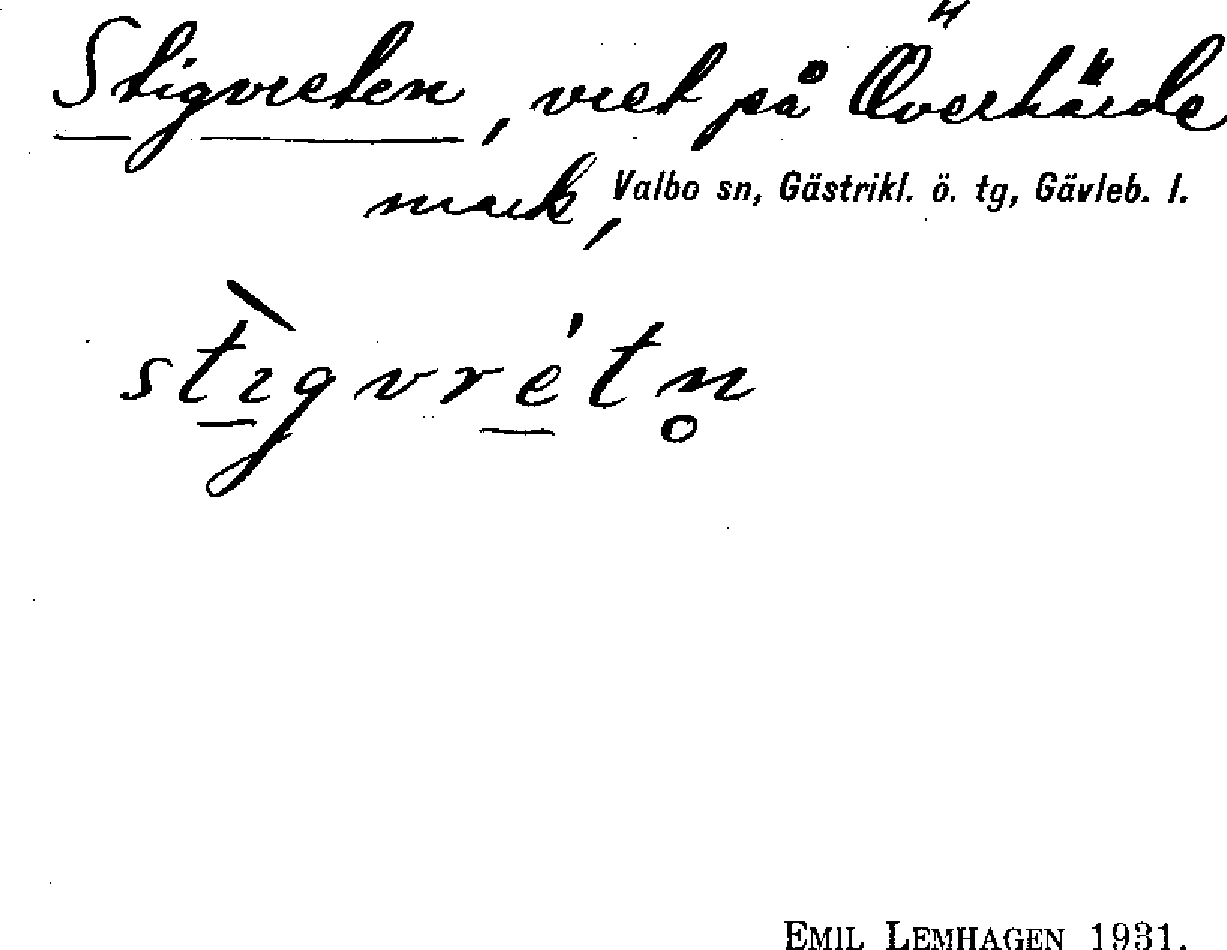 Stigvreten, vret på Överhärde
mark, Valbo sn, Gästrikl. ö. tg, Gävleb. l.
stìgvrétn̥
EMIL LEMHAGEN 1931.